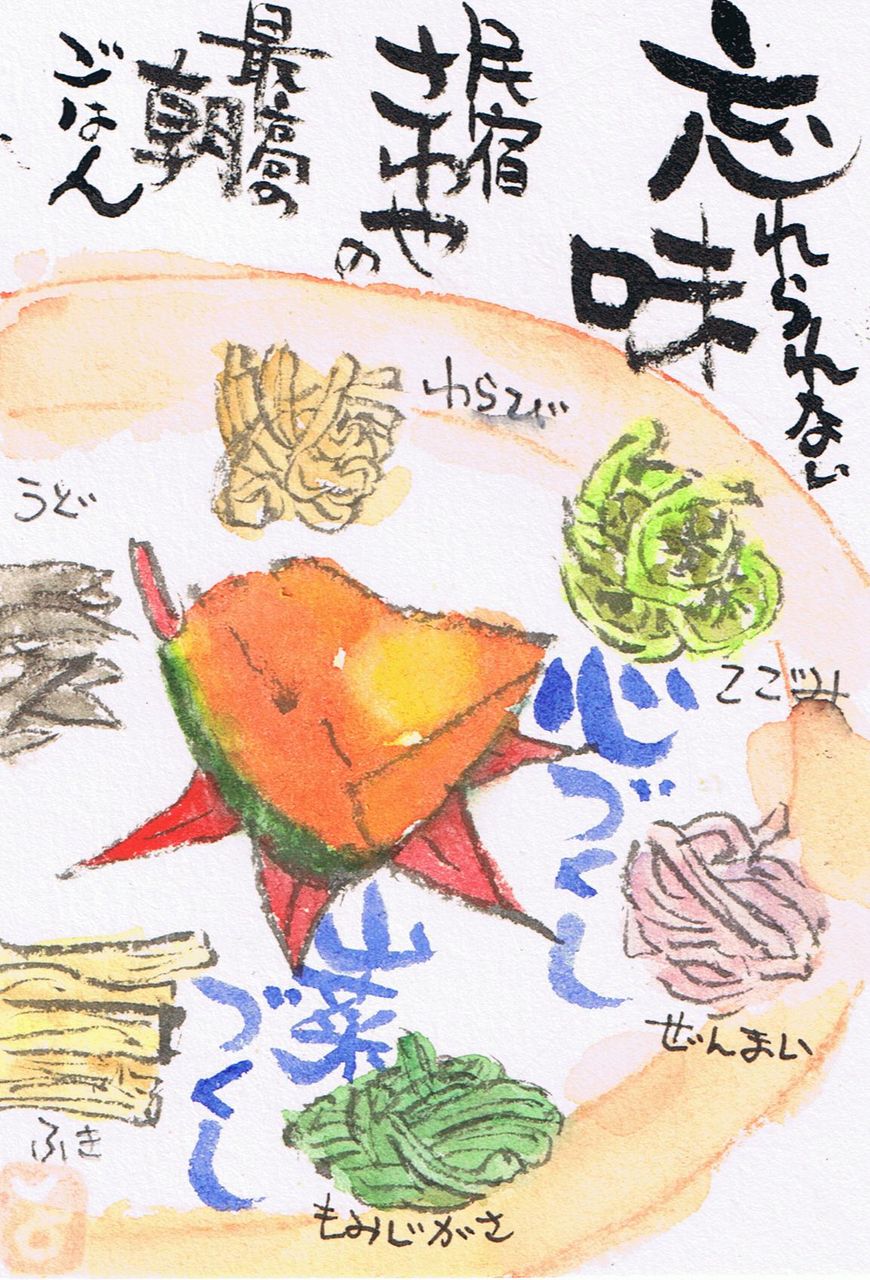 忘れられない
味
民宿
さわや
の
最高の
朝
ごはん
わらび
うど
こごみ
心づくし
ぜんまい
山菜
づくし
ふき
もみじがさ